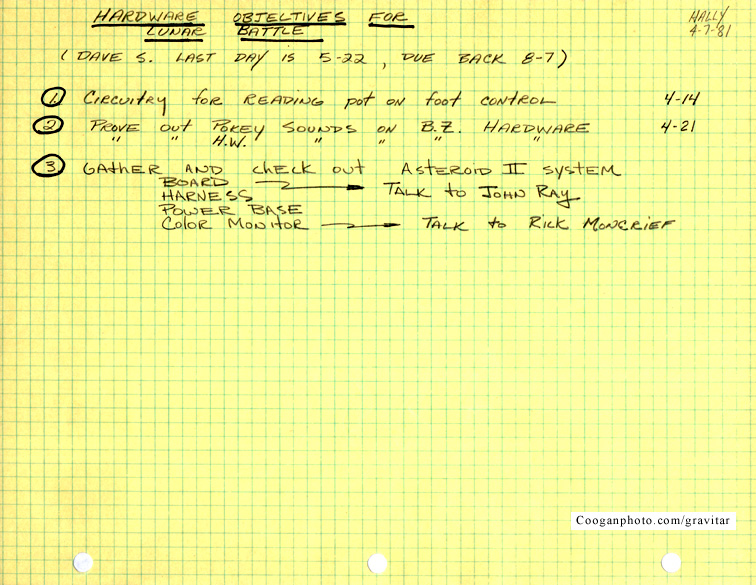 HARDWARE OBJECTIVES FOR
LUNAR BATTLE
HALLY
4-7-81
(DAVE S. LAST DAY IS 5-22, DUE BACK 8-7)
① CIRCUITRY FOR READING POT ON FOOT CONTROL 4-14
② PROVE OUT POKEY SOUNDS ON B.Z. HARDWARE 4-21
" " H.W. " " " "
③ GATHER AND CHECK OUT ASTEROID II SYSTEM
BOARD → TALK TO JOHN RAY
HARNESS
POWER BASE
COLOR MONITOR → TALK TO RICK MONCRIEF
Cooganphoto.com/gravitar